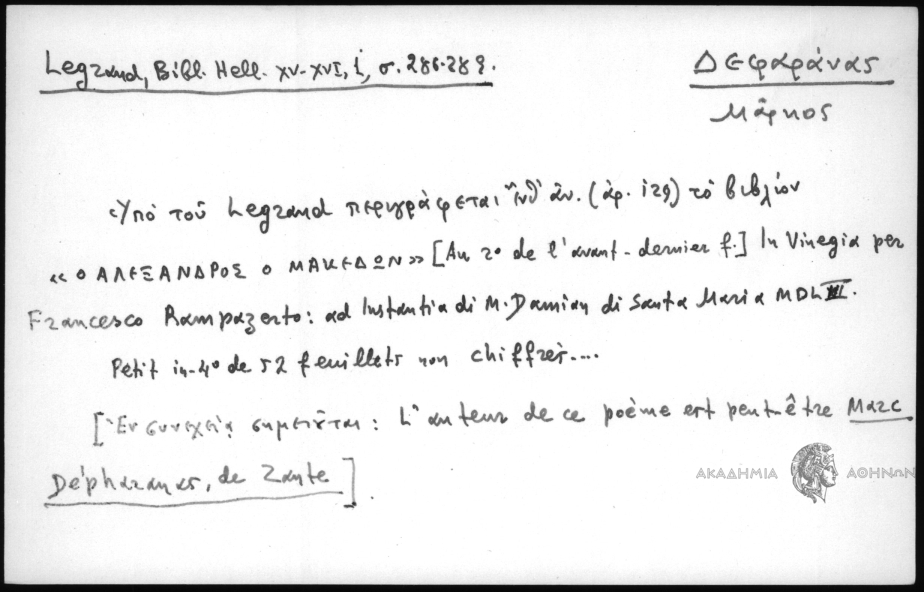 Legrand, Bibl. Hell. XV-XVI, 1, σ. 286-289.
Δεφαράνας
Μᾶρκος
Ὑπὸ τοῦ Legrand περιγράφεται ἀν. (ἀρ. 129) τὸ βιβλίον
«Ο ΑΛΕΞΑΝΔΡΟΣ Ο ΜΑΚΕΔΩΝ» [Au r° de l'avant-dernier f.] In Vinegia per
Francesco Rampazetto: ad Instantia di M. Damian di Santa Maria MDLIII.
Petit in-4° de 52 feuillets non chiffrés....
[Ἐν συνεχείᾳ σημειοῦται: L'auteur de ce poème est peut-être Marc
Dépharanas, de Zante].
ΑΚΑΔΗΜΙΑ ΑΘΗΝΩΝ